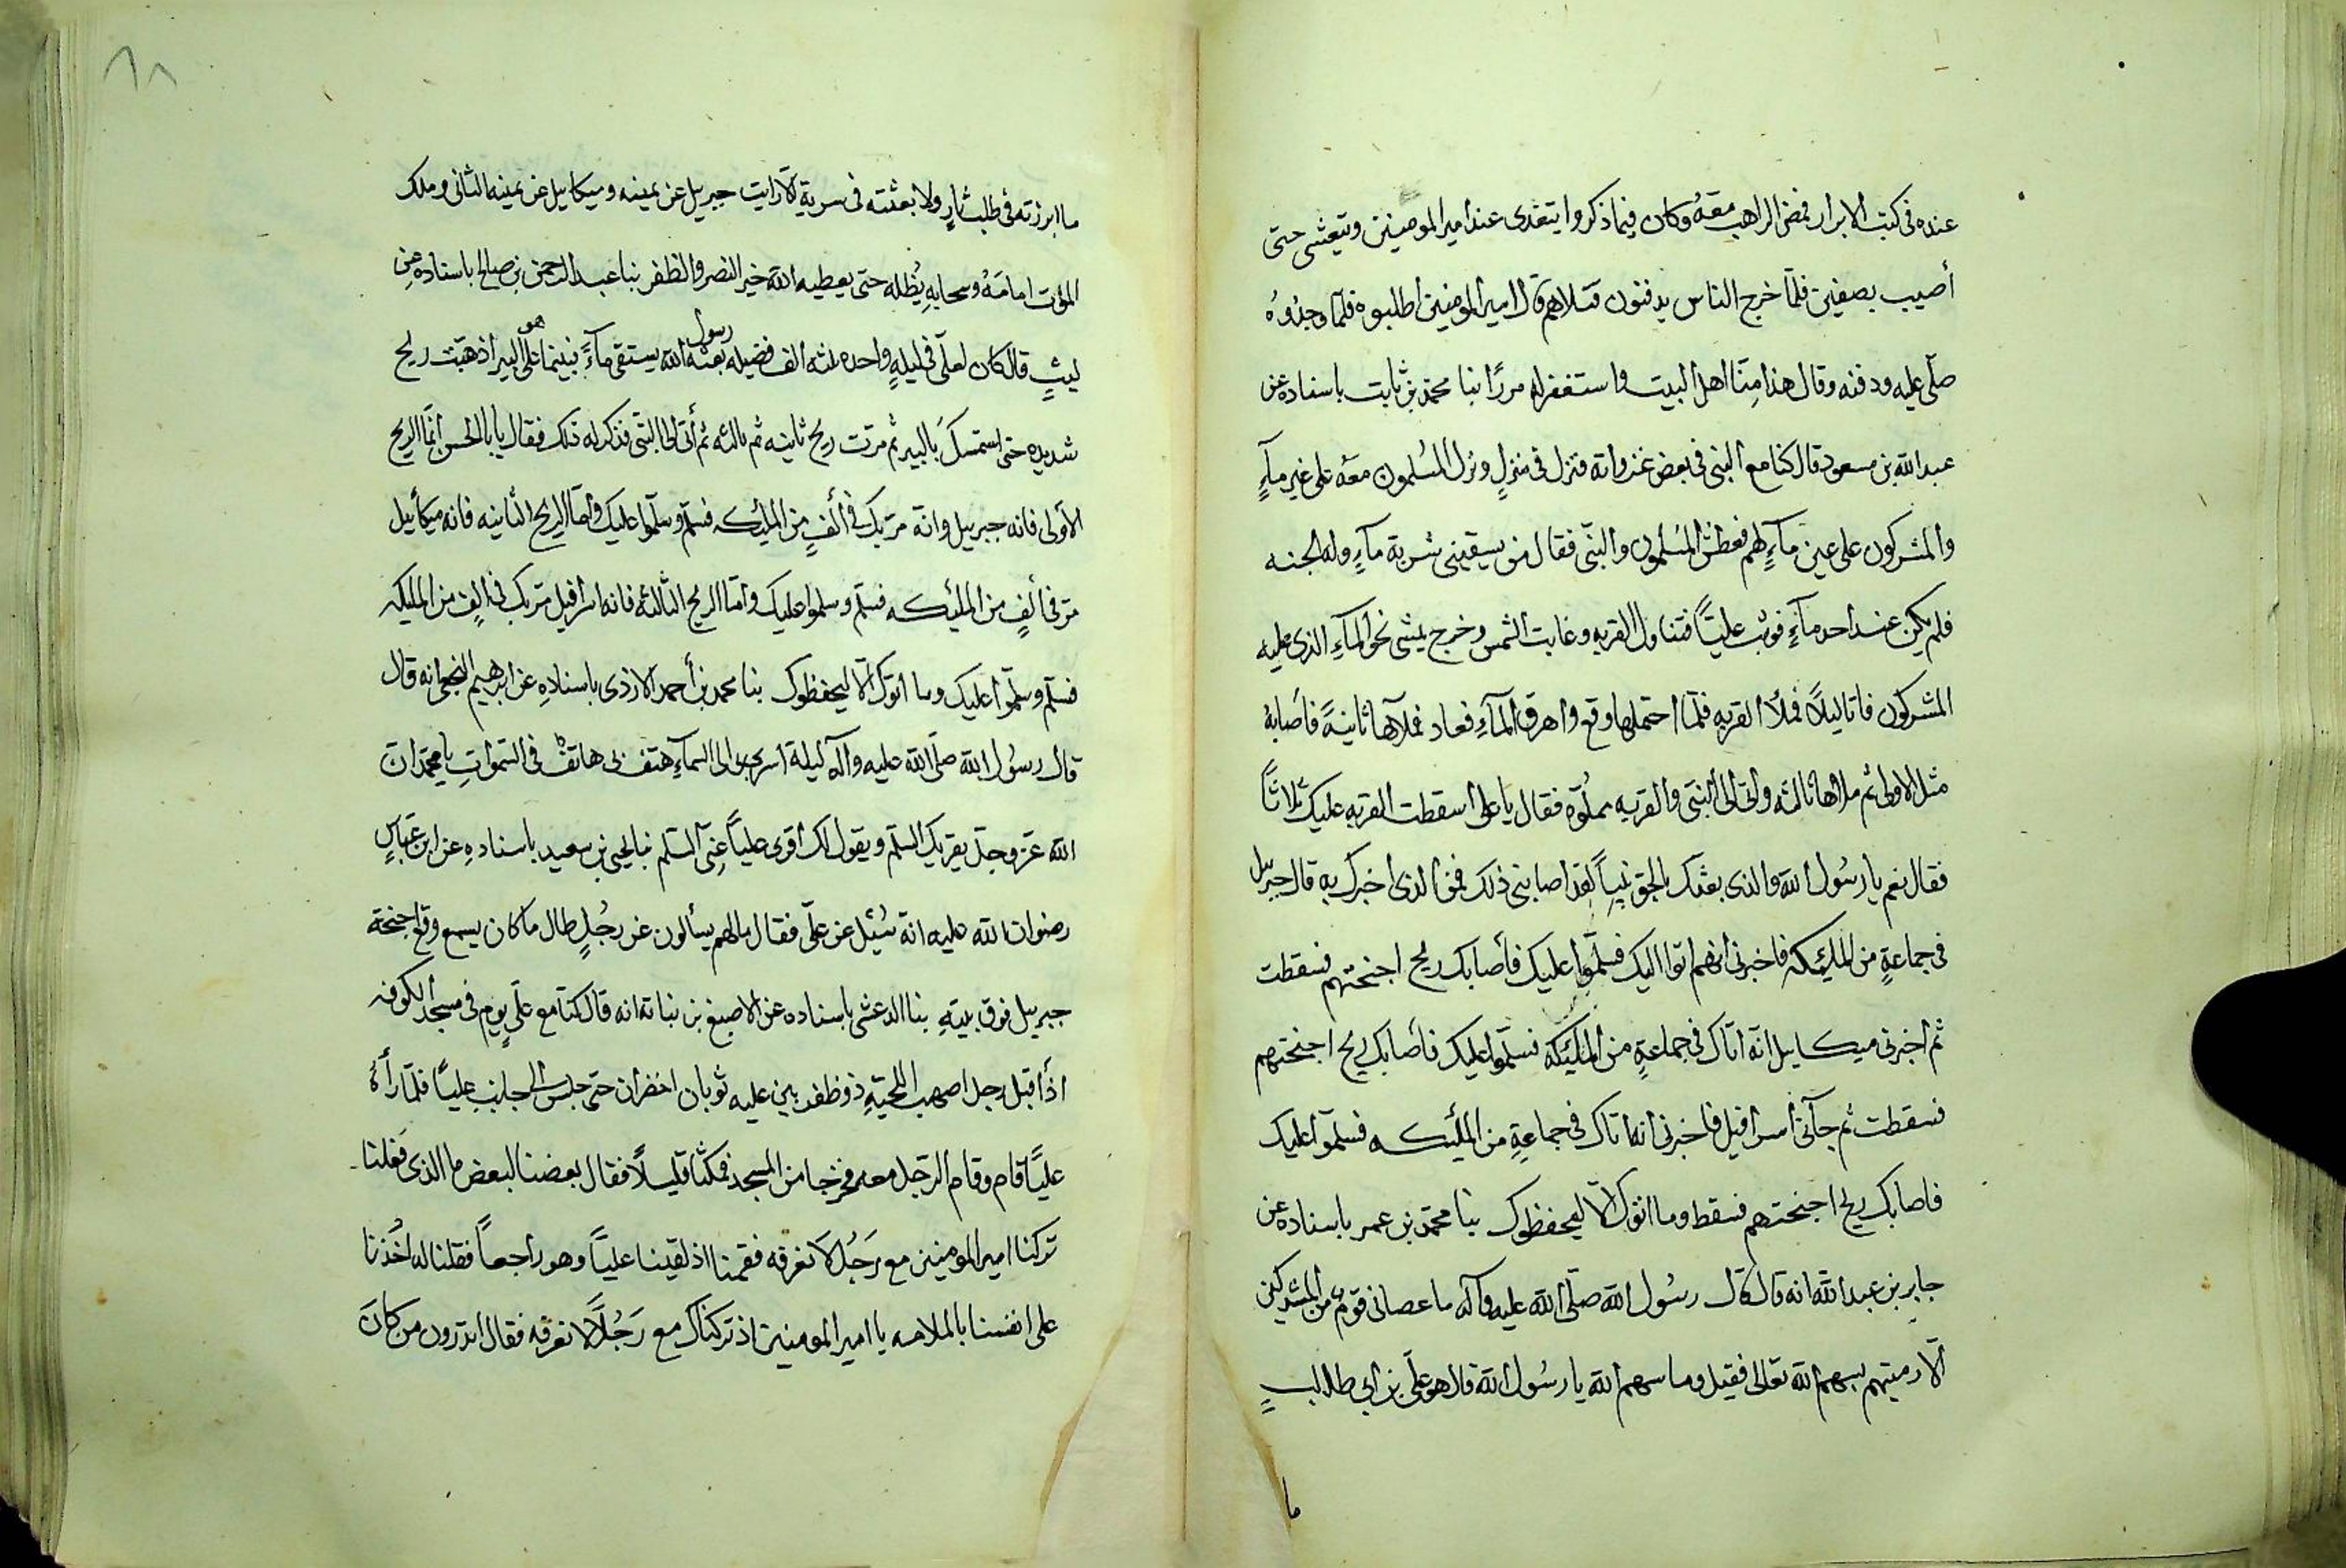 عنده فى كتب الابرار فمضى الراهب معَهُ وكان فيما ذكروا يتغدى عند امير المومنين ويتعشى حتى
أصيب بصفين فلمّا خرج الناس يدفنون قتلاهم قال امير المومنين اطلبوه فلمّا وجدُوهُ
صلّى عليه ودفنه وقال هذا مِنّا اهل البيت واستغفر له مررًا بنا محمد بن ثابت باسناده عن
عبد الله بن مسعود قال كنا مع النبى فى بعض غزواته فنزل فى منزلٍ ونزل المسُلمون معَهُ على غير مآءٍ
والمشركون على عين مآءٍ لهم فعطش المسُلمون والنبّى فقال من يسقينى شربة مآءٍ وله الجنه
فلم يكن عند احد مآءٍ فوثب عليـًّا فتناول القربه وغابت الشمس وخرج يمشى نحو المآءِ الذى عليه
المشركون فاتا ليلاً فملأ القربه فلمّا احتملها وقع واهرق المآءِ فعاد فملآها ثانيةً فأصابهُ
مثل الاولى ثم ملاها ثالثه واتى الى النبّى والقربه مملُوّه فقال يا على اسقطت القربه عليك ثلاثًا
فقال نعم يا رسُول الله والذى بعثك بالحق نبياً لقد اصابنى ذلك فمن الذى اخبرك به قال جبريل
فى جماعةٍ من المليٓكه فاخبرنى أنهم اتوا اليك فسلّموا عليك فأصابك ريح اجنحتهم فسقطت
ثم أخبرنى ميكايل انّه اتاك فى جماعةٍ من المليٓكه فسلّموا عليك فأصابك ريح اجنحتهم
فسقطت ثم جآئى أسرافيل فاخبرنى أنه اتاك فى جماعةٍ من المليٓكه فسلّموا عليك
فاصابك ريح اجنحتهم فسقط وما اتوك الّا ليحفظوك بنا محمّد بن عمر باسناده عن
جابر بن عبد الله انه قال قال رسُول الله صلّى الله عليه وآله ما عصانى قومٌ من المشركين
الّا رميتهم بسهم الله تعالى فقيل وما سهم الله يا رسُول الله قال هو علّى بن ابى طالبٍ
ما
٨٨
ما ابرزته فى طلب ثارٍ ولا بعثته فى سرية الّا رايت جبريل عن يمينه وميكايل عن يمينه الثانى وملك
الموت امامَهُ وسحابهٍ يُظله حتى يعطيه الله خير النصر والظفر بنا عبد الرحمن بن صالح باسناده عن
ليثٍ قال كان لعلّى فى ليلهٍ واحده ثلثه الف فضيله بعثه رسول الله يستقى مآءً فبينما هو على البير اذ هبّت ريح
شديده حتى استمسكَ بالبير ثم مرّت ريح ثانيه ثم ثالثه ثم أتى الى النبّى فذكر له ذلك فقال يا بالحسن أنمّا الريح
الاولى فانه جبرييل وانّه مرّ بك فى ألفٍ من المليٓكه فسلّم وسلّموا عليك وأمّا الريح الثانيه فانه ميكأييل
مرّ فى ألفٍ من المليٓكه فسلّم وسلموا عليك وأمّا الريح الثالثه فانه اسرافيل مرّ بك فى الفٍ من المليكه
فسلّم وسلّموا عليك وما اتوك الّا ليحفظوك بنا محمد بن أحمد الازدى باسنادهِ عن ابرهيم النخعى انه قال
قال رسُول الله صلّى الله عليه وآله ليلة اسرى بى الى السمآءِ هتف بى هاتفٌ فى السمواتِ يا محمّد انّ
الله عزّ وجلّ يقريك السلم ويقول لك أقرى عليًّا عنِّى السّلم بنا يحيى بن سعيد باسنادهِ عن ابن عبّاسٍ
رضوان الله عليه انهّ سُيل عن علّى فقال مالهم يسألون عن رجُلٍ طال ما كان يسمع وقع اجنحة
جبرييل فوق بيتهِ بنا الدعشى باسناده عن الاصبغ بن نباتة انه قال كنّا مع علّى يومٍ فى مسجد الكوفه
اذأ اقبل رجل اصهب اللحيةِ ذو ظفيرتين عليه ثوبان اخضران حتى جلس الى جانب عليـًّا فلمّا رأهُ
عليـًّا قام وقام الرّجل معه فخرجا من المسجد فمكثنا قليلاً فقال بعضنا لبعض ما الذى فَعلنا
تركنا امير المومنين مع رَجُلاً لا نعرفه فقمنا اذ لقينا عليّاً وهو راجعاً فقلنا له اخُذنا
على انفسنا بالملامه يا امير المومنين اذ تركناك مع رَجُلًا لا نعرفه فقال اتدرون من كانَ